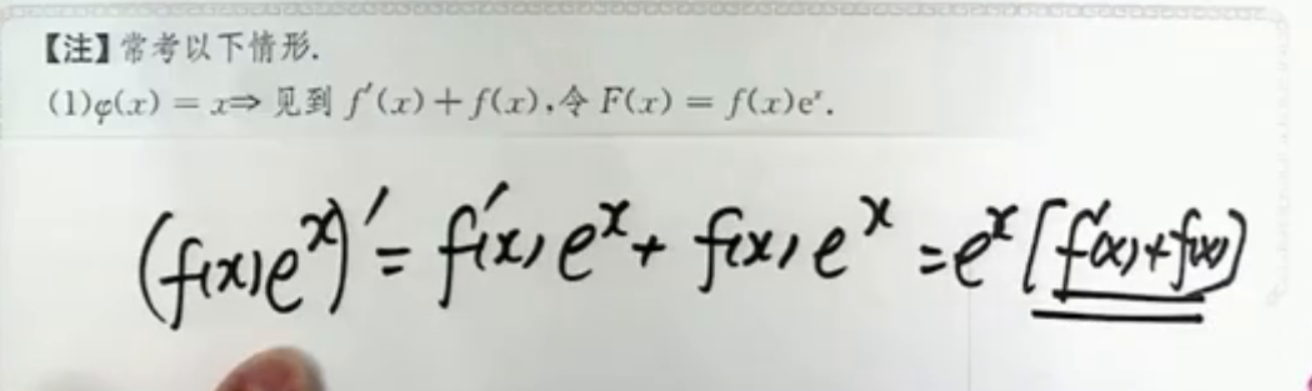 【注】常考以下情形.
(1)φ(x) = x⇒ 见到 f′(x)+f(x),令 F(x) = f(x)eˣ.
(f(x)eˣ)′ = f′(x)eˣ + f(x)eˣ = eˣ[f′(x)+f(x)]